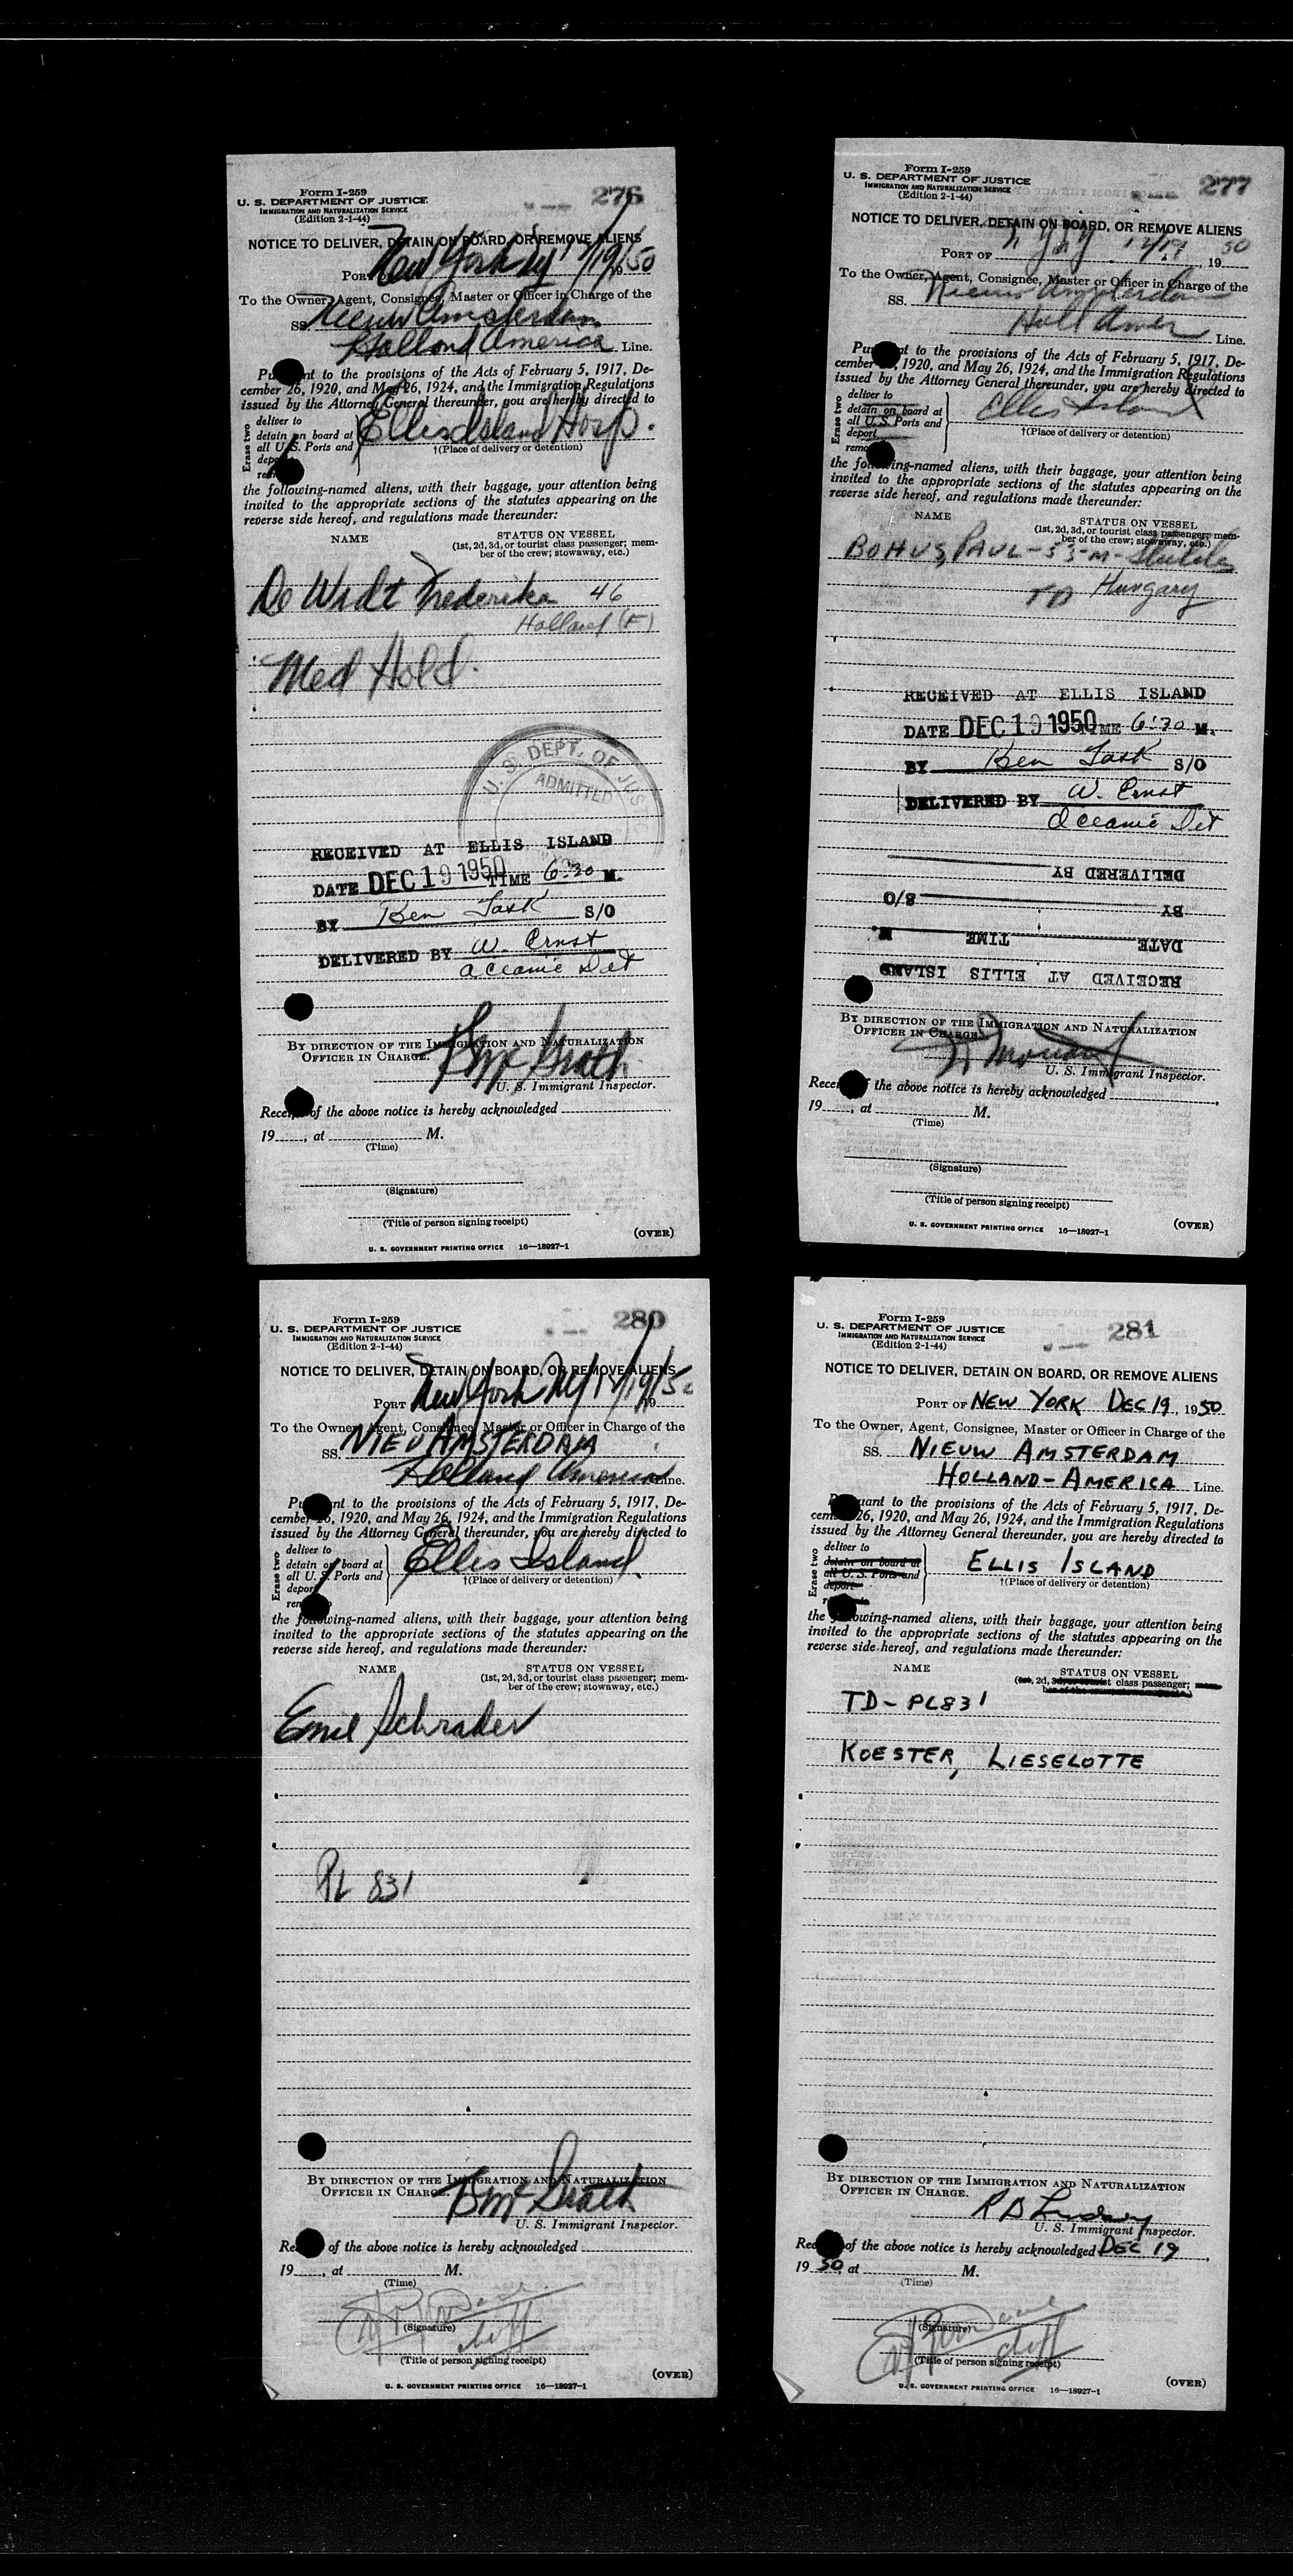 276
Form I-259
U. S. DEPARTMENT OF JUSTICE
IMMIGRATION AND NATURALIZATION SERVICE
(Edition 2-1-44)
NOTICE TO DELIVER, DETAIN ON BOARD, OR REMOVE ALIENS
PORT New York Ny 12/19/50
To the Owner, Agent, Consignee, Master or Officer in Charge of the
SS. Nieuw Amsterdam
Holland America Line.
nt to the provisions of the Acts of February 5, 1917, De-
cember 26, 1920, and May 26, 1924, and the Immigration Regulations
issued by the Attorney General thereunder, you are hereby directed to
Erase two
deliver to
detain on board at
all U. S. Ports and
Ellis Island Hosp.
†(Place of delivery or detention)
the following-named aliens, with their baggage, your attention being
invited to the appropriate sections of the statutes appearing on the
reverse side hereof, and regulations made thereunder:
NAME STATUS ON VESSEL
(1st, 2d, 3d, or tourist class passenger; mem-
ber of the crew; stowaway, etc.)
De Wadt Frederika 46
Holland (F)
Med Hold.
U. S. DEPT. OF JUSTIC
ADMITTED
RECEIVED AT ELLIS ISLAND
DATE DEC 19 1950 TIME 6:30 M.
BY Ben Task S/O
DELIVERED BY W. Ernst
Oceanic Det
BY DIRECTION OF THE IMMIGRATION AND NATURALIZATION
OFFICER IN CHARGE.
B McGrath
U. S. Immigrant Inspector.
of the above notice is hereby acknowledged
19 , at M.
(Time)
(Signature)
(Title of person signing receipt)
(OVER)
U. S. GOVERNMENT PRINTING OFFICE 16—18927-1
277
Form I-259
U. S. DEPARTMENT OF JUSTICE
IMMIGRATION AND NATURALIZATION SERVICE
(Edition 2-1-44)
NOTICE TO DELIVER, DETAIN ON BOARD, OR REMOVE ALIENS
PORT OF N Y N Y 12/19, 1950
To the Owner, Agent, Consignee, Master or Officer in Charge of the
SS. Nieuw Amsterdam
Holl Amer Line.
nt to the provisions of the Acts of February 5, 1917, De-
cember , 1920, and May 26, 1924, and the Immigration Regulations
issued by the Attorney General thereunder, you are hereby directed to
Erase two
deliver to
detain on board at
all U.S. Ports and
deport
Ellis Island
†(Place of delivery or detention)
the following-named aliens, with their baggage, your attention being
invited to the appropriate sections of the statutes appearing on the
reverse side hereof, and regulations made thereunder:
NAME STATUS ON VESSEL
(1st, 2d, 3d, or tourist class passenger; mem-
ber of the crew; stowaway, etc.)
BOHUS, PAUL-53-M-
TD Hungary
RECEIVED AT ELLIS ISLAND
DATE DEC 19 1950 TIME 6:30 M.
BY Ben Task S/O
DELIVERED BY W. Ernst
Oceanic Det
DELIVERED BY
BY S/O
DATE TIME M.
RECEIVED AT ELLIS ISLAND
BY DIRECTION OF THE IMMIGRATION AND NATURALIZATION
OFFICER IN CHARGE.
U. S. Immigrant Inspector.
the above notice is hereby acknowledged
19 , at M.
(Time)
(Signature)
(Title of person signing receipt)
U. S. GOVERNMENT PRINTING OFFICE 16—18927-1
(OVER)
280
Form I-259
U. S. DEPARTMENT OF JUSTICE
IMMIGRATION AND NATURALIZATION SERVICE
(Edition 2-1-44)
NOTICE TO DELIVER, DETAIN ON BOARD, OR REMOVE ALIENS
PORT New York NY 12/19/50
To the Owner, Agent, Consignee, Master or Officer in Charge of the
SS. NIEU AMSTERDAM
Holland America Line.
nt to the provisions of the Acts of February 5, 1917, De-
cember 26, 1920, and May 26, 1924, and the Immigration Regulations
issued by the Attorney General thereunder, you are hereby directed to
Erase two
deliver to
detain on board at
all U. S. Ports and
deport
Ellis Island.
†(Place of delivery or detention)
the following-named aliens, with their baggage, your attention being
invited to the appropriate sections of the statutes appearing on the
reverse side hereof, and regulations made thereunder:
NAME STATUS ON VESSEL
(1st, 2d, 3d, or tourist class passenger; mem-
ber of the crew; stowaway, etc.)
Emil Schrader
PL 831
BY DIRECTION OF THE IMMIGRATION AND NATURALIZATION
OFFICER IN CHARGE.
B McGrath
U. S. Immigrant Inspector.
of the above notice is hereby acknowledged
19 , at M.
(Time)
(Signature)
(Title of person signing receipt)
(OVER)
U. S. GOVERNMENT PRINTING OFFICE 16—18927-1
281
Form I-259
U. S. DEPARTMENT OF JUSTICE
IMMIGRATION AND NATURALIZATION SERVICE
(Edition 2-1-44)
NOTICE TO DELIVER, DETAIN ON BOARD, OR REMOVE ALIENS
PORT OF NEW YORK DEC 19, 1950
To the Owner, Agent, Consignee, Master or Officer in Charge of the
SS. NIEUW AMSTERDAM
HOLLAND-AMERICA Line.
uant to the provisions of the Acts of February 5, 1917, De-
cember 26, 1920, and May 26, 1924, and the Immigration Regulations
issued by the Attorney General thereunder, you are hereby directed to
Erase two
deliver to
detain on board at
all U. S. Ports and
deport
ELLIS ISLAND
†(Place of delivery or detention)
the following-named aliens, with their baggage, your attention being
invited to the appropriate sections of the statutes appearing on the
reverse side hereof, and regulations made thereunder:
NAME STATUS ON VESSEL
(1st, 2d, 3d, or tourist class passenger;
ber of the crew; stowaway, etc.)
TD-PL831
KOESTER, LIESELOTTE
BY DIRECTION OF THE IMMIGRATION AND NATURALIZATION
OFFICER IN CHARGE.
R B Lindsay
U. S. Immigrant Inspector.
of the above notice is hereby acknowledged DEC 19,
1950, at M.
(Time)
(Signature)
(Title of person signing receipt)
(OVER)
U. S. GOVERNMENT PRINTING OFFICE 16—18927-1